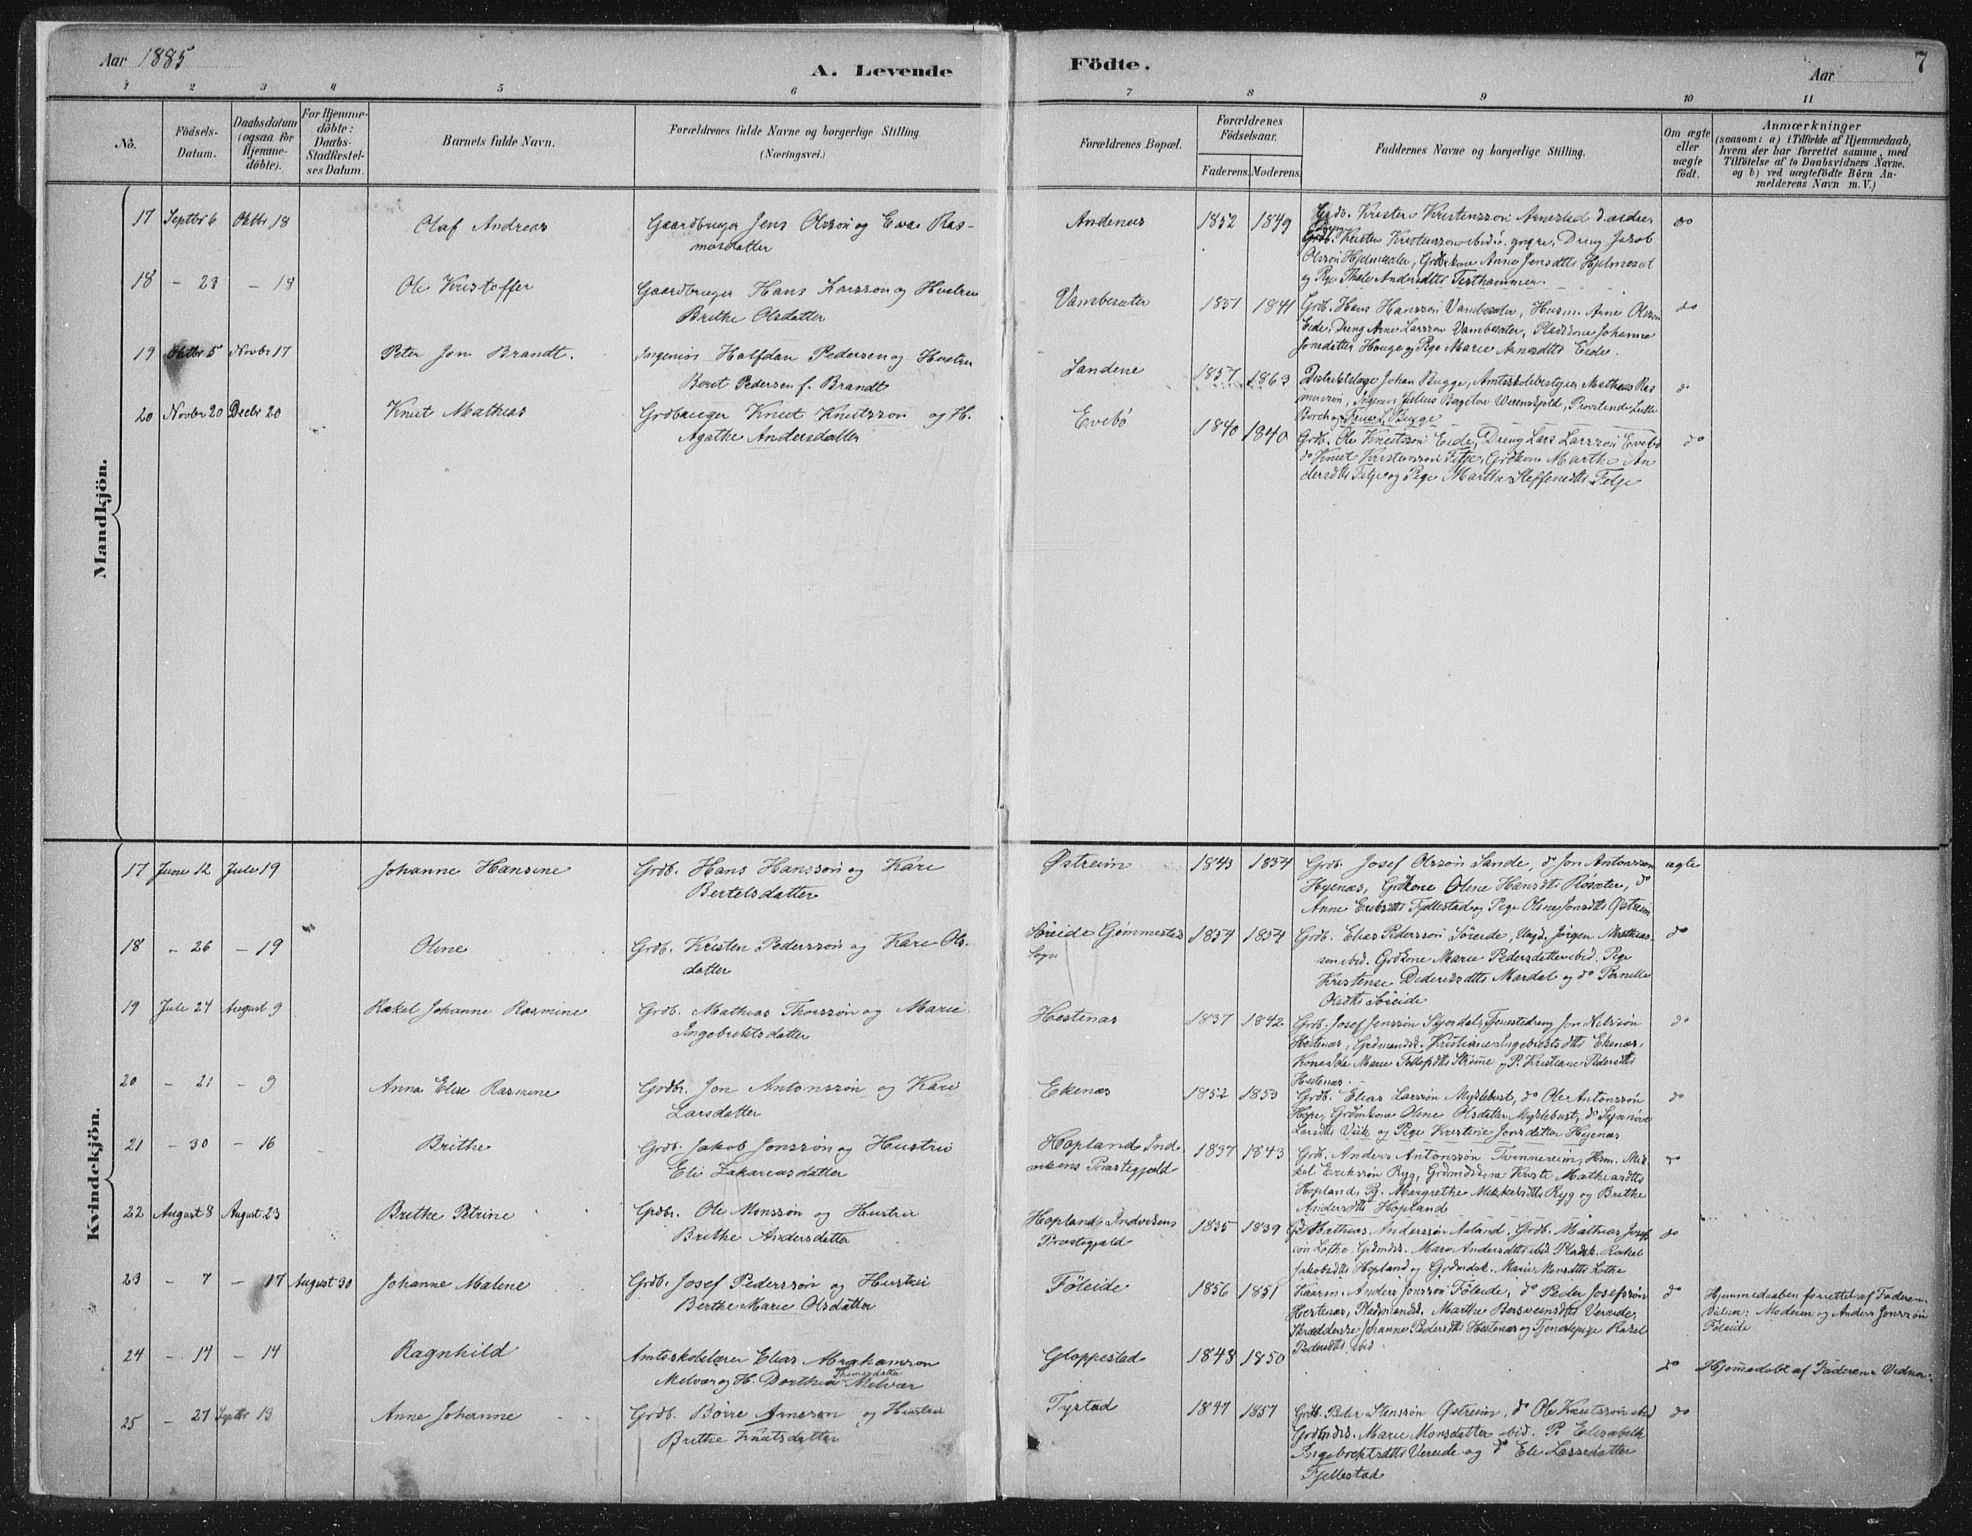 Aar 1885
A. Levende
Födte.
Aar
7
1 2 3 4 5 6 7 8 9 10 11
No.
Födsels-
Datum.
Daabsdatum
(ogsaa for
Hjemme-
döbte).
For Hjemme-
döbte:
Daabs-
Stadfæstel-
ses Datum.
Barnets fulde Navn.
Forældrenes fulde Navne og borgerlige Stilling.
(Næringsvei.)
Forældrenes Bopæl.
Forældrenes
Födselsaar.
Faderens. Moderens.
Faddernes Navne og borgerlige Stilling.
Om ægte
eller
uægte
födt.
Anmærkninger
(saasom: a) i Tilfælde af Hjemmedaab,
hvem der har forrettet samme, med
Tilföielse af to Daabsvidners Navne.
og b) ved uægtefödte Börn An-
melderens Navn m. V.)
Mandkjön.
17 Septbr 6 Oktbr 18 Olaf Andreas
Gaardbruger Jens Olsson og Eva Ras-
musdatter
Andenæs 1852 1849
Grdb. Krister Kristensson Arnestad d. ældre
Grdb. Kristen Kristensson ibid. yngre, Dreng Jacob
Olsson Hjelmesæter, Grdbkone Anne Jensdtts Hjelmeset
og Pge Thale Andersdtts Testhammer.
do
18 - 23 - 18 Ole Kristoffer
Gaardbruger Hans Larsson og Hustru
Brithe Olsdatter
Vambesæter 1851 1841
Grdb. Hans Hansson Vambesæter, Husm. Arne Olsson
Eide, Dreng Arne Larsson Vambesæter, Pladskone Johanne
Jonsdatter Hauge og Pge Marie Arnesdtts Eide.
do
19 Oktbr 5 Novbr 17 Peter Jon Brandt.
Ingeniør Halfdan Pedersen og Hustru
Berit Pedersen f. Brandt
Sandene 1857 1863
Distriktslæge Johan Bugge, Amtsskolebestyrer Mathias Ras
musson, Ingeniør Julius Werenskjold, Provstinde Lulle
Borch og Frue L. Bugge
do
20 Novbr 20 Decbr 20 Knut Mathias
Grdbruger Knut Knutsson og H.
Agathe Andersdatter
Evebø 1840 1840
Grdb. Ole Knutsson Eide, Dreng Lars Larsson Evebø
do Knut Kristensson Felje, Grdkone Marthe An
dersdtts Felje og Pige Marthe Steffensdtts Felje
do
Kvindekjön.
17 Juni 12 Juli 19 Johanne Hansine
Grdb. Hans Hanssøn og Kari
Bertelsdatter
Østreim 1843 1854
Grdb. Josef Olssøn Sande, do Jon Antonssøn
Hyenæs, Grdkone Oline Hansdtts Røsæter, do
Anne Eriksdtts Fjellestad og Pige Oline Jonsdtts Østreim
ægte
18 - 26 - 19 Oline
Grdb. Kristen Pederssøn og Kari Ols-
datter
Søreide Gimmestad
Sogn 1854 1854
Grdb. Elias Pederssøn Søreide, Ungk. Jørgen Mathias-
søn ibid. Grdkone Marie Pedersdatter ibid. Pige
Kristense Didriksdtts Mardal og do Pernille
Olsdtts Søreide
do
19 Juli 24 August 9 Rakel Johanne Rasmine
Grdb. Mathias Thorssøn og Marie
Ingebriktsdatter
Hestenæs 1837 1842
Grdb. Josef Jenssøn Skjerdal, Tjenestedreng Jon Nilssøn
Hestenæs, Grdmandsk. Kristiane Ingebrigtsdtts Ekenæs,
Kone Ida Marie Tollefsdtts Strømme, P. Kristiane Pedersdtts
Hestenæs.
do
20 - 21 - 9 Anna Elise Rasmine
Grdbr. Jon Antonssøn og Kari
Larsdatter
Ekenæs 1852 1853
Grdb. Elias Larssøn Myklebust, do Ole Antonssøn
Hope, Grdmkone Oline Olsdatter Myklebust, do Synnøve
Larsdtts Vik og Pige Kristine Jonsdatter Hyenæs
do
21 - 30 - 16 Brithe
Grdb. Jakob Jonssøn og Hustru
Eli Zakariasdatter
Hopland Ind
vikens Præstegjæld 1837 1843
Grdb. Anders Antonssøn Tvinnereim, Hsm. Mik
kel Erikssøn Ryg, Grdmdskone Kristi Mathiasdtts
Hopland, Pg. Margrethe Mikkelsdtts Ryg og Brithe
Andersdtts Hopland
do
22 August 8 August 23 Brithe Petrine
Grdbr. Ole Monssøn og Hustru
Brithe Andersdatter
Hopland Indvikens
Præstegjæld 1835 1839
Gdb Mathias Anderssøn Aaland, Grdb. Mathias Josef
søn Lothe, Grdmdsk. Mari Andersdtts ibid Pladsk. Rakel
Jakobsdtts Hopland og Grdmdsk. Marie Monsdtts Lothe
do
23 - 7 - 17 August 30 Johanne Malene
Grdb. Josef Pederssøn og Hustru
Berthe Marie Olsdatter
Føleide 1856 1851
Kaarm. Anders Jonssøn Føleide, do Peder Josefssøn
Hestenæs, Pladsmandsk. Marthe Bersveinsdtts Vereide,
Skrædderske Johanne Pedersdtts Hestenæs og Tjenestepige Rakel
Pedersdtts ibid
do
Hjemmedaaben forrettet af Faderen.
Vidner: Moderen og Anders Jonssøn
Føleide
24 - 14 - 14 Ragnhild
Amtsskolelærer Elias Abrahamson
Melvær og H. Dorthea Thomasdatter Melvær
Gloppestad 1848 1850
do
Hjemmedøbt af Faderen. Vidne:
25 - 27 Septbr 13 Anne Johanne
Grdb. Børre Arnesøn og Hustru
Brithe Knutsdatter
Tystad 1847 1857
Grdb. Peder Stenssøn Østreim, do Ole Knutssøn ibid
Grdmdsk. Marie Monsdatter ibid. P. Elisabeth
Ingebrektsdtts Vereide og do Eli Lassedatter
Fjellestad
do